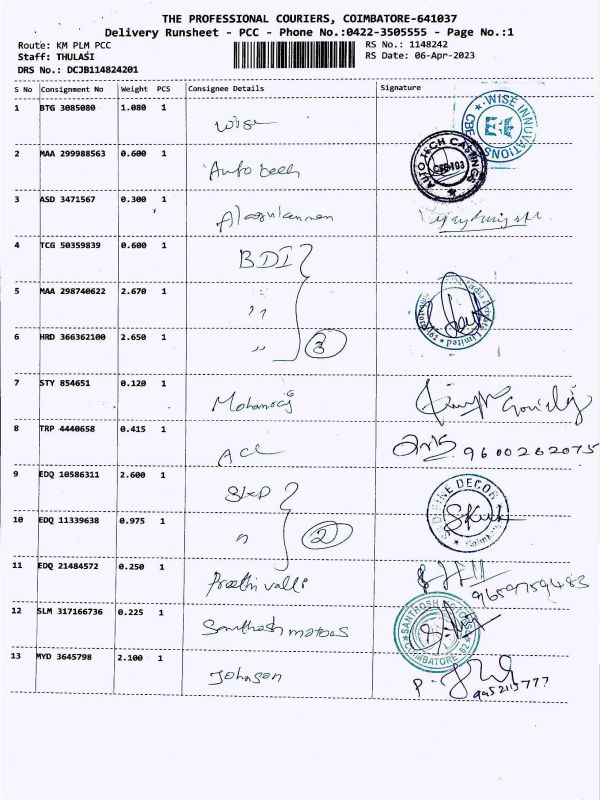 THE PROFESSIONAL COURIERS, COIMBATORE-641037
Delivery Runsheet - PCC - Phone No.:0422-3505555 - Page No.:1
Route: KM PLM PCC RS No.: 1148242
Staff: THULASI RS Date: 06-Apr-2023
DRS No.: DCJB114824201
S No Consignment No Weight PCS Consignee Details Signature
1 BTG 3085080 1.080 1 Wise WISE INNOVATIONS CBE
2 MAA 299988563 0.600 1 Auto tech AUTO TECH CASTINGS CBE-103
3 ASD 3471567 0.300 1
4 TCG 50359839 0.600 1 BDI
5 MAA 298740622 2.670 1 " India Private Limited
6 HRD 366362100 2.650 1 " 3
7 STY 854651 0.120 1 Mohanraj
8 TRP 4440658 0.415 1 ACL 9600262075
9 EDQ 10586311 2.600 1 SKD DECOR
10 EDQ 11339638 0.975 1 " 2
11 EDQ 21484572 0.250 1 Preethi valli 9659759483
12 SLM 317166736 0.225 1 Santhosh motors SANTHOSH COIMBATORE
13 MYD 3645798 2.100 1 Johnson